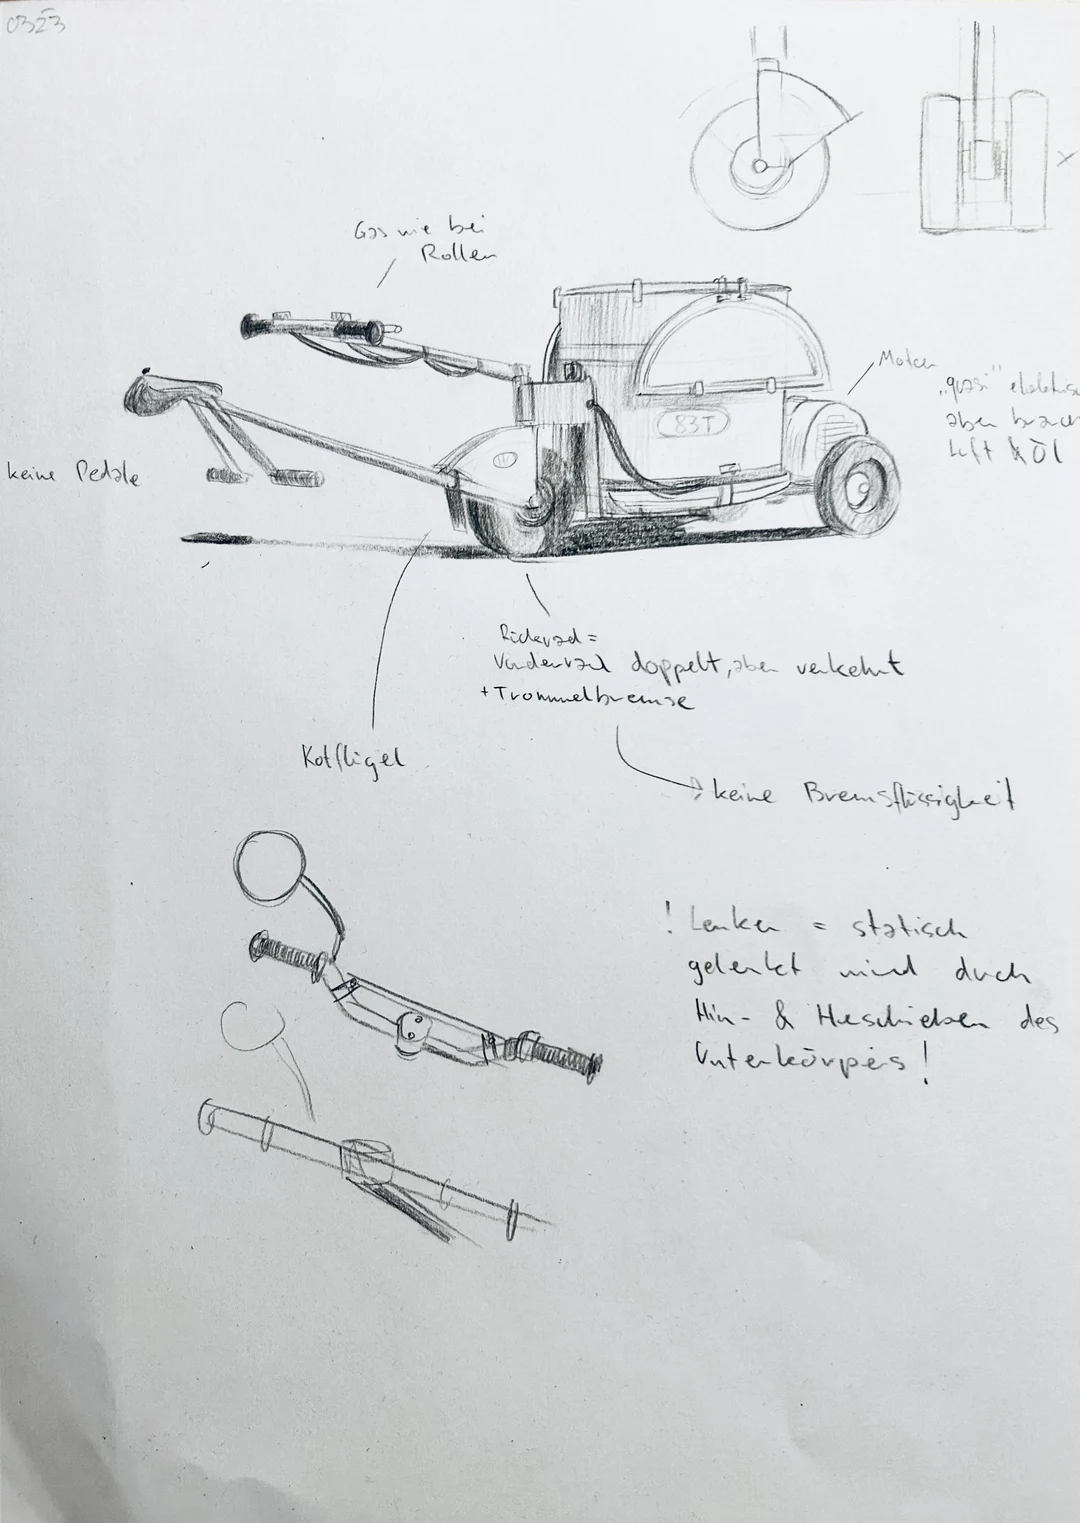 0323
Gas wie bei
Roller
Motor
"quasi" elektrisc
aber brauch
Luft & Öl
83T
keine Pedale
Rückrad =
Vorderrad doppelt, aber verkehrt
+ Trommelbremse
Kotflügel
keine Bremsflüssigkeit
! Lenker = statisch
gelenkt wird durch
Hin- & Herschieben des
Unterkörpers!